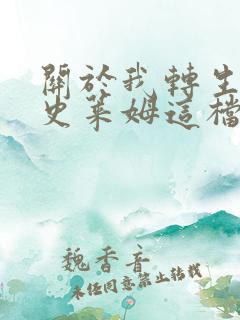 關於我轉生
史萊姆這檔
魏香音
未經同意禁止轉載